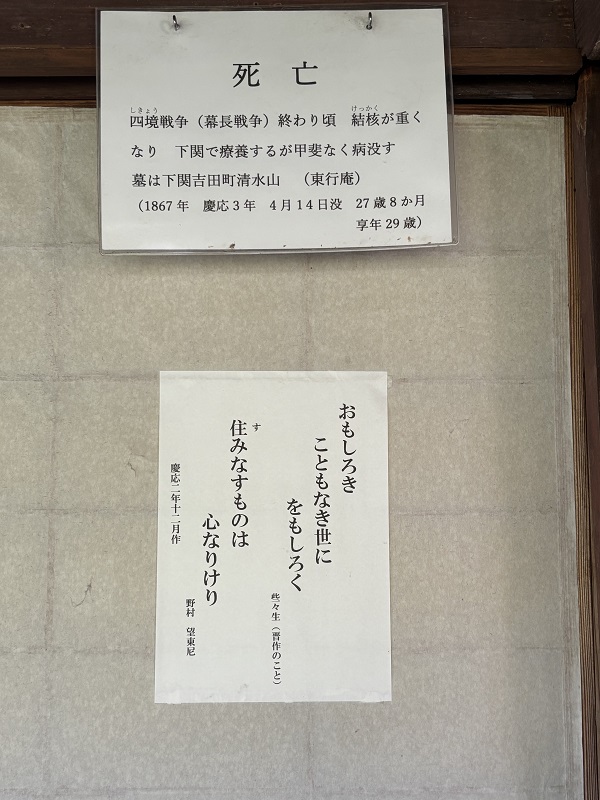 死亡
しきょう けっかく
四境戦争（幕長戦争）終わり頃 結核が重く
なり 下関で療養するが甲斐なく病没す
墓は下関吉田町清水山 （東行庵）
（1867年 慶応3年 4月14日没 27歳8か月
享年29歳）
おもしろき
こともなき世に
をもしろく
些々生（晋作のこと）
す
住みなすものは
心なりけり
野村 望東尼
慶応二年十二月作